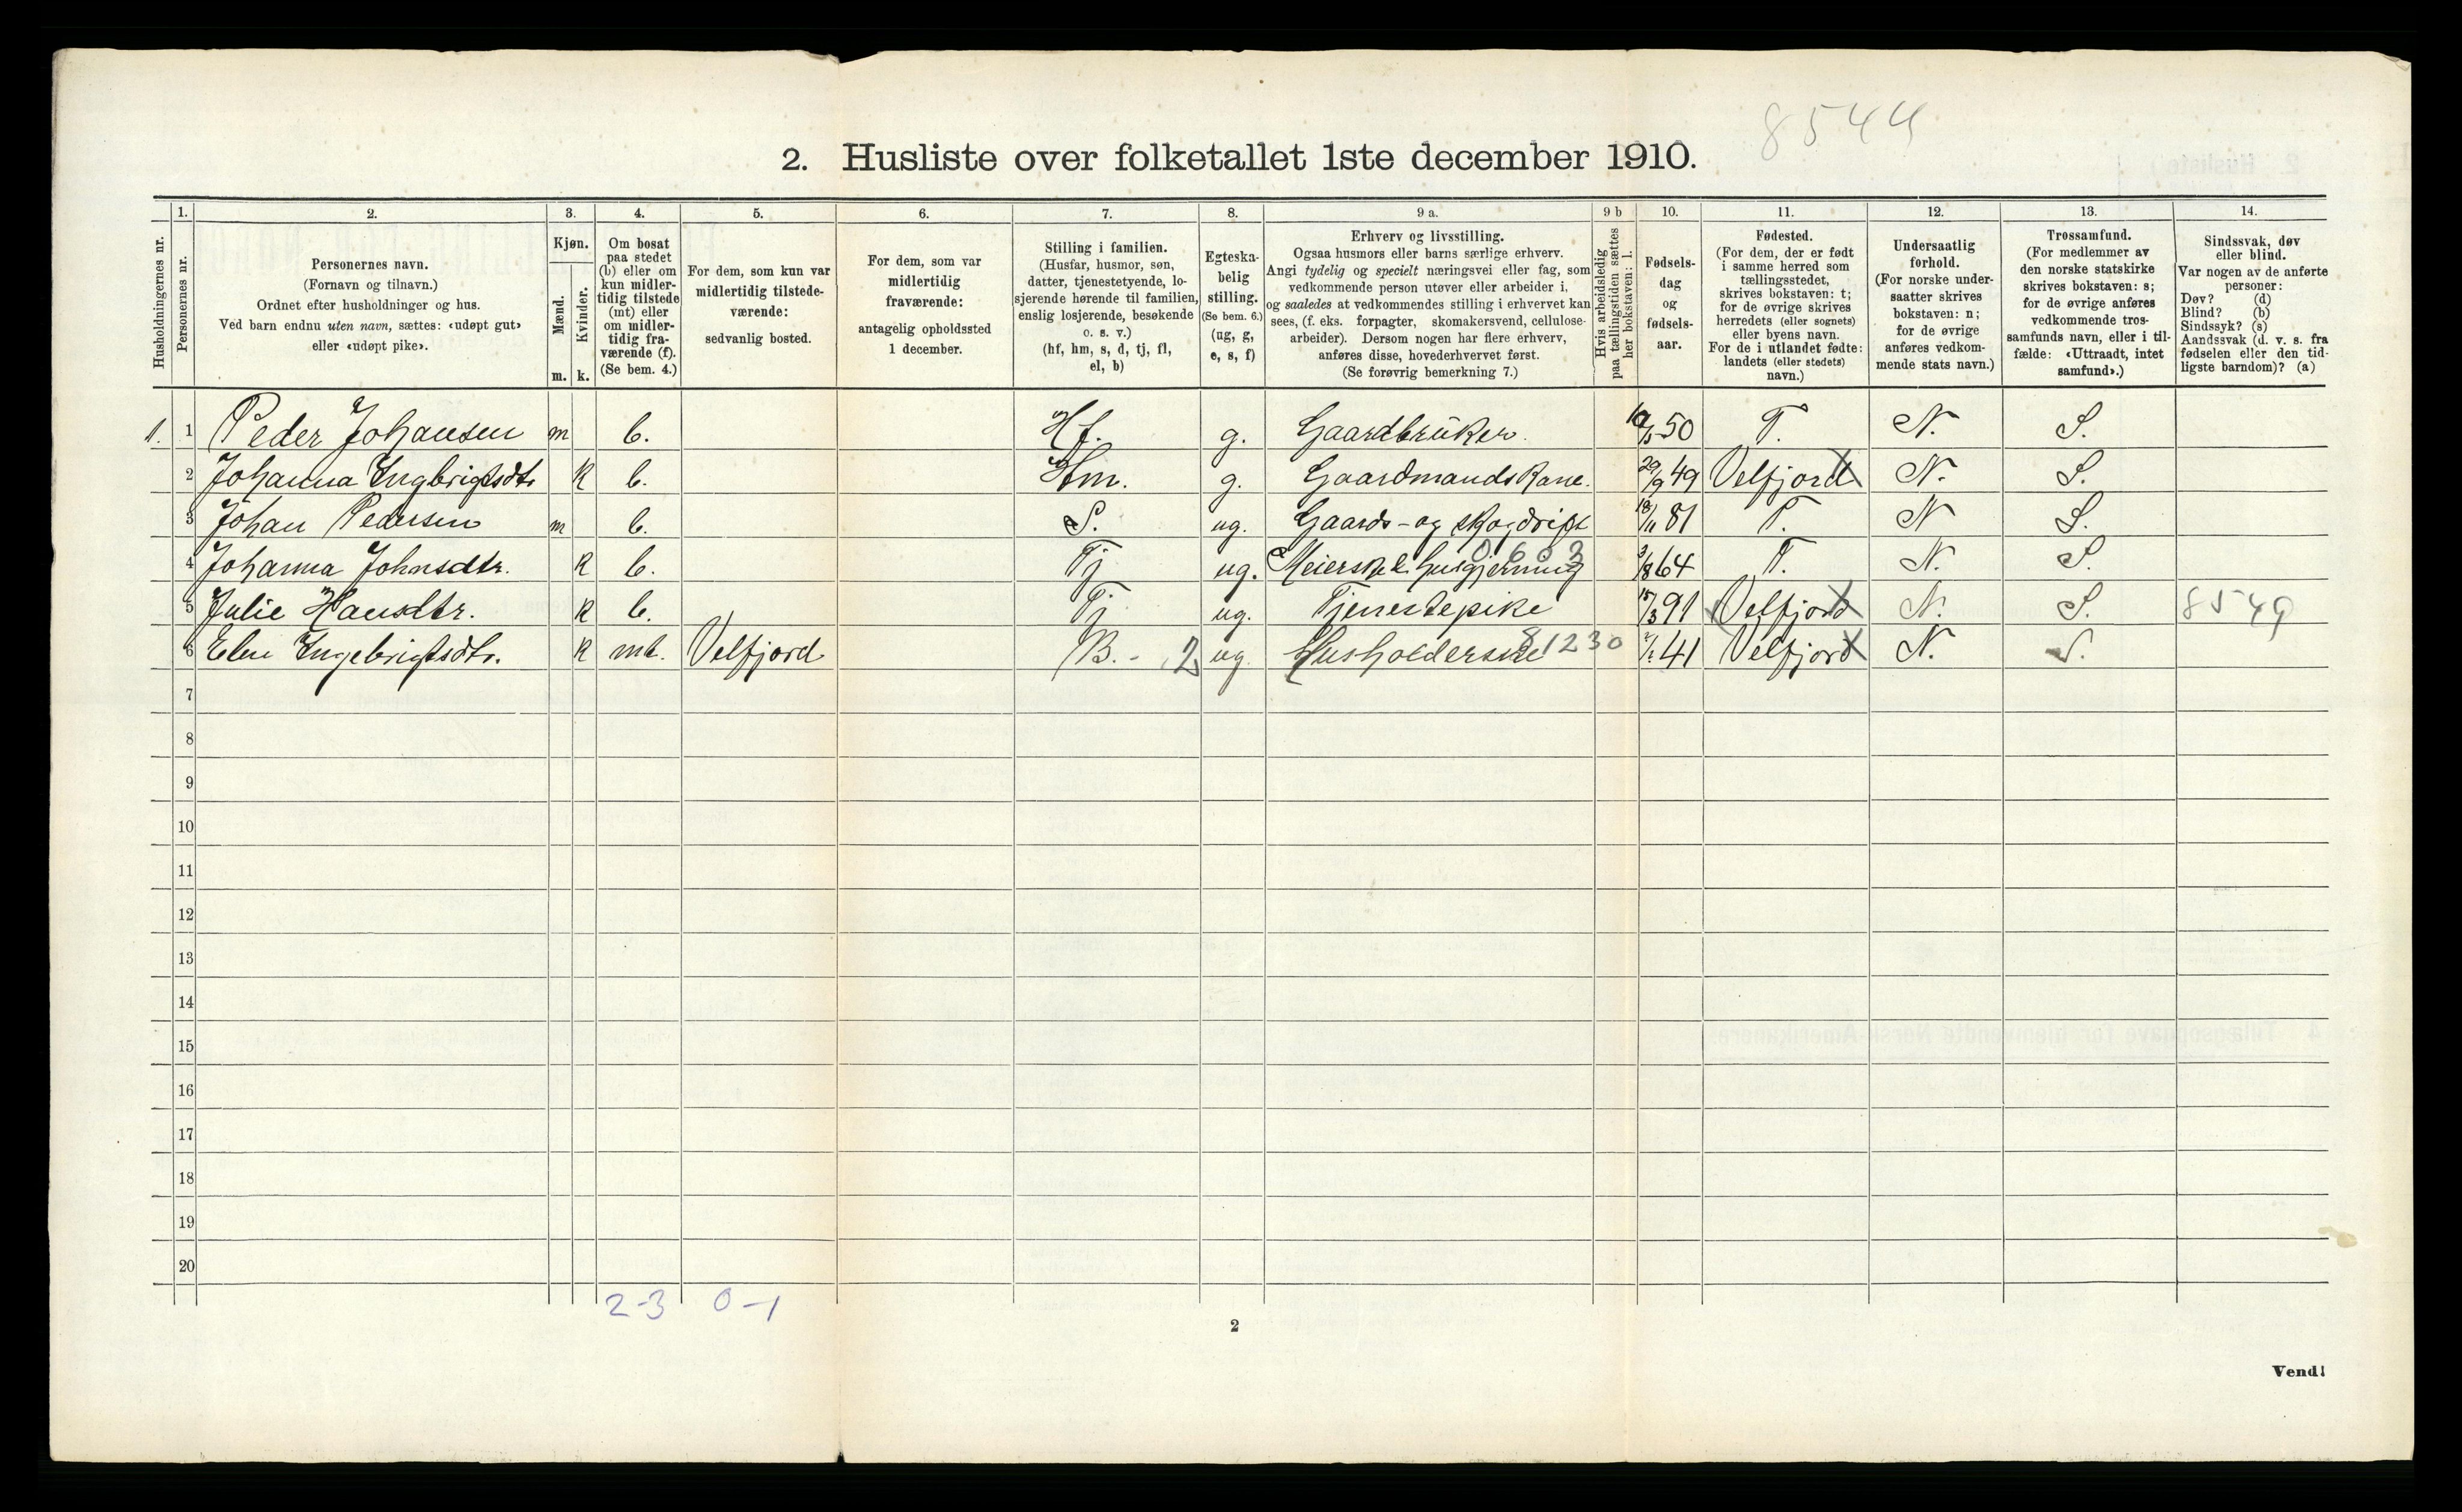 8544
2. Husliste over folketallet 1ste december 1910.
Husholdningernes nr.
1.
Personernes nr.
2.
Personernes navn.
(Fornavn og tilnavn.)
Ordnet efter husholdninger og hus.
Ved barn endnu uten navn, sættes: «udøpt gut»
eller «udøpt pike».
3.
Kjøn.
Mænd.
Kvinder.
m. k.
4.
Om bosat
paa stedet
(b) eller om
kun midler-
tidig tilstede
(mt) eller
om midler-
tidig fra-
værende (f).
(Se bem. 4.)
5.
For dem, som kun var
midlertidig tilstede-
værende:
sedvanlig bosted.
6.
For dem, som var
midlertidig
fraværende:
antagelig opholdssted
1 december.
7.
Stilling i familien.
(Husfar, husmor, søn,
datter, tjenestetyende, lo-
sjerende hørende til familien,
enslig losjerende, besøkende
o. s. v.)
(hf, hm, s, d, tj, fl,
el, b)
8.
Egteska-
belig
stilling.
(Se bem. 6.)
(ug, g,
e, s, f)
9 a.
Erhverv og livsstilling.
Ogsaa husmors eller barns særlige erhverv.
Angi tydelig og specielt næringsvei eller fag, som
vedkommende person utøver eller arbeider i,
og saaledes at vedkommendes stilling i erhvervet kan
sees, (f. eks. forpagter, skomakersvend, cellulose-
arbeider). Dersom nogen har flere erhverv,
anføres disse, hovederhvervet først.
(Se forøvrig bemerkning 7.)
9 b
Hvis arbeidsledig
paa tællingstiden sættes
her bokstaven: l.
10.
Fødsels-
dag
og
fødsels-
aar.
11.
Fødested.
(For dem, der er født
i samme herred som
tællingsstedet,
skrives bokstaven: t;
for de øvrige skrives
herredets (eller sognets)
eller byens navn.
For de i utlandet fødte:
landets (eller stedets)
navn.)
12.
Undersaatlig
forhold.
(For norske under-
saatter skrives
bokstaven: n;
for de øvrige
anføres vedkom-
mende stats navn.)
13.
Trossamfund.
(For medlemmer av
den norske statskirke
skrives bokstaven: s;
for de øvrige anføres
vedkommende tros-
samfunds navn, eller i til-
fælde: «Uttraadt, intet
samfund».)
14.
Sindssvak, døv
eller blind.
Var nogen av de anførte
personer:
Døv? (d)
Blind? (b)
Sindssyk? (s)
Aandssvak (d. v. s. fra
fødselen eller den tid-
ligste barndom)? (a)
1. 1 Peder Johansen m b. Hf. g. Gaardbrüker. 50 T. N. S.
2 Johanna Engbrigtsdtr K b. Hm. g. Gaardmandskone. 29/9 49 Velfjord N. S.
3 Johan Pedersen m b. S. ug. Gaards- og skogdrift 18/11 81 T. N S.
4 Johanna Johnsdtr. K b. Tj ug. Meierske & husgjerning 3/8 64 T. N. S.
5 Julie Hansdtr. K b. Tj ug. Tjenestepike 15/3 91 Velfjord N. S. 8549
6 Elen Engebrigtsdtr. K mt. Velfjord B. - 2 ug Husholderske 81230 41 Velfjord N. S.
7
8
9
10
11
12
13
14
15
16
17
18
19
20
2-3 0-1
2
Vend!